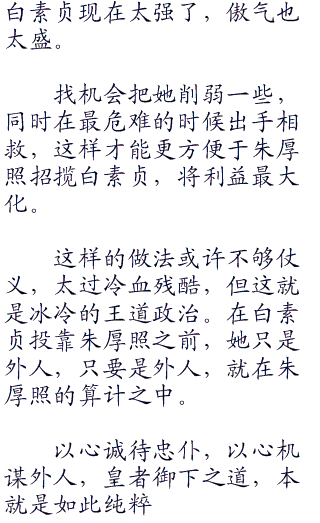 白素贞现在太强了，傲气也
太盛。
找机会把她削弱一些，
同时在最危难的时候出手相
救，这样才能更方便于朱厚
照招揽白素贞，将利益最大
化。
这样的做法或许不够仗
义，太过冷血残酷，但这就
是冰冷的王道政治。在白素
贞投靠朱厚照之前，她只是
外人，只要是外人，就在朱
厚照的算计之中。
以心诚待忠仆，以心机
谋外人，皇者御下之道，本
就是如此纯粹